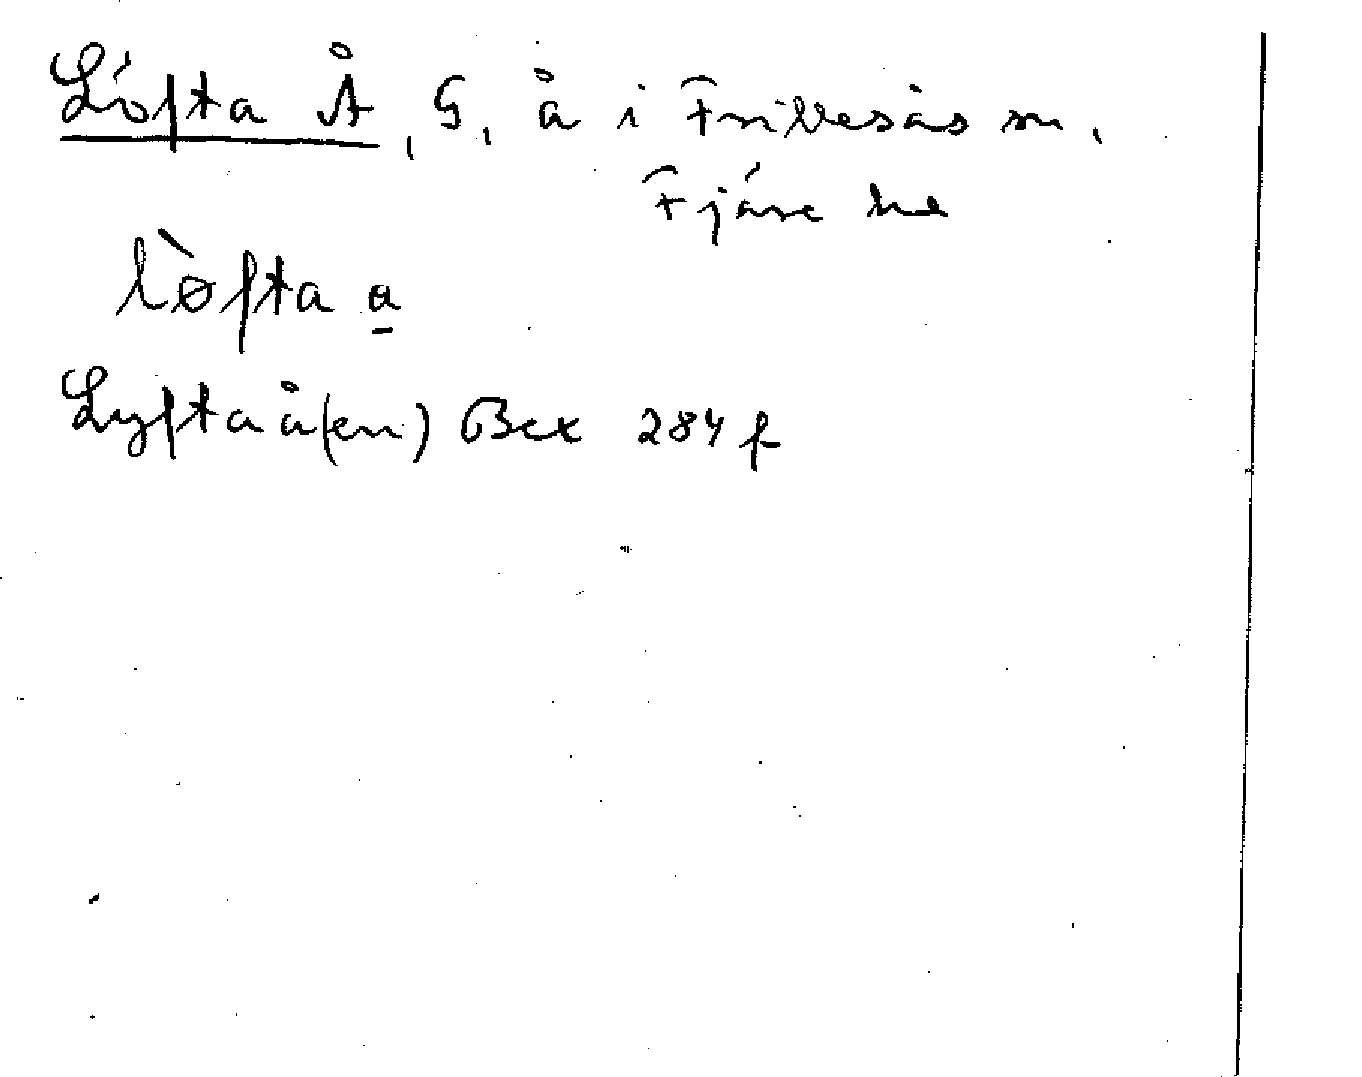 Löfta Å, G, å i Frillesås sn,
Fjäre hd
lø̀fta a̲
Lyftaå(en) Bex 284 f